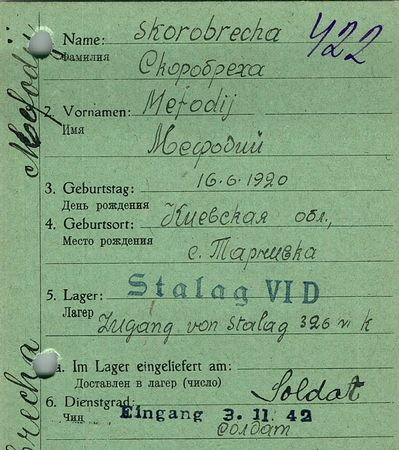 Name: Skorobrecha 422
Фамилия
Скоробреха
2. Vornamen: Mefodij
Имя
Мефодий
3. Geburtstag: 16.6.1920
День рождения
4. Geburtsort: Киевская обл.,
Место рождения
с.
5. Lager: Stalag VI D
Лагерь
Zugang von Stalag 326 VI K
a. Im Lager eingeliefert am:
Доставлен в лагерь (число)
6. Dienstgrad: Soldat
Чин Eingang 3. 11. 42
Солдат
Mefodij
brecha